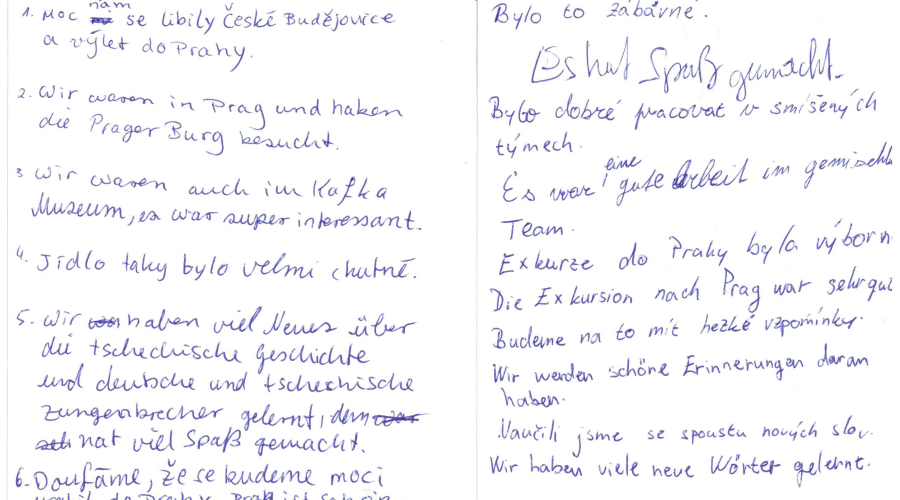 1. Moc nám se libily České Budějovice
a výlet do Prahy.
2. Wir waren in Prag und haben
die Prager Burg besucht.
3 Wir waren auch im Kafka
Museum, es war super interessant.
4. Jídlo taky bylo velmi chutné.
5. Wir haben viel Neues über
die tschechische Geschichte
und deutsche und tschechische
Zungenbrecher gelernt, denn
hat viel Spaß gemacht.
6. Doufáme, že se budeme moci
do Prahy. Prag ist schön
Bylo to zábavné.
Es hat Spaß gemacht.
Bylo dobré pracovat v smíšených
týmech.
Es war eine gute Arbeit im gemischt
Team.
Exkurze do Prahy byla výborn
Die Exkursion nach Prag war sehr gut
Budeme na to mít hezké vzpomínky.
Wir werden schöne Erinnerungen daran
haben.
Naučili jsme se spoustu nových slov.
Wir haben viele neue Wörter gelernt.